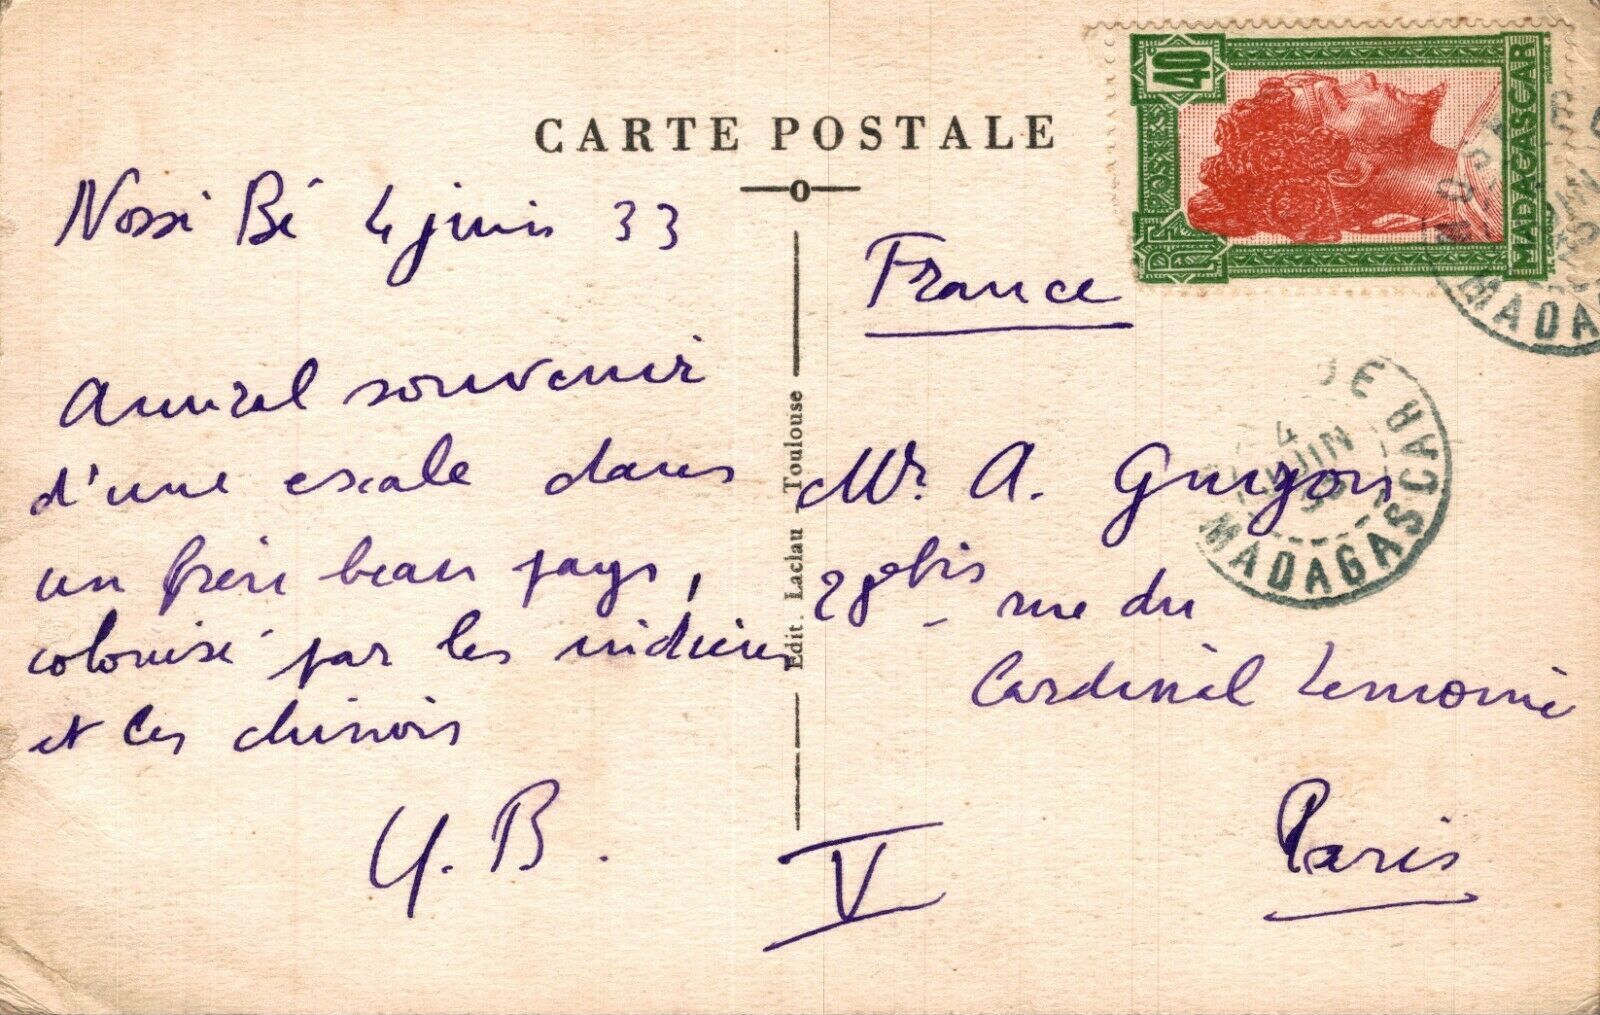 CARTE POSTALE
Nossi Bé 4 juin 33
Amical souvenir
d'une escale dans
un très beau pays,
colonisé par les indiens
et les chinois
Y. B.
Edit. Laclau - Toulouse
40
MADAGASCAR
MADA
4
JUIN
MADAGASCAR
France
Mr. A. Guyon
bis rue du
Cardinal Lemoine
V
Paris